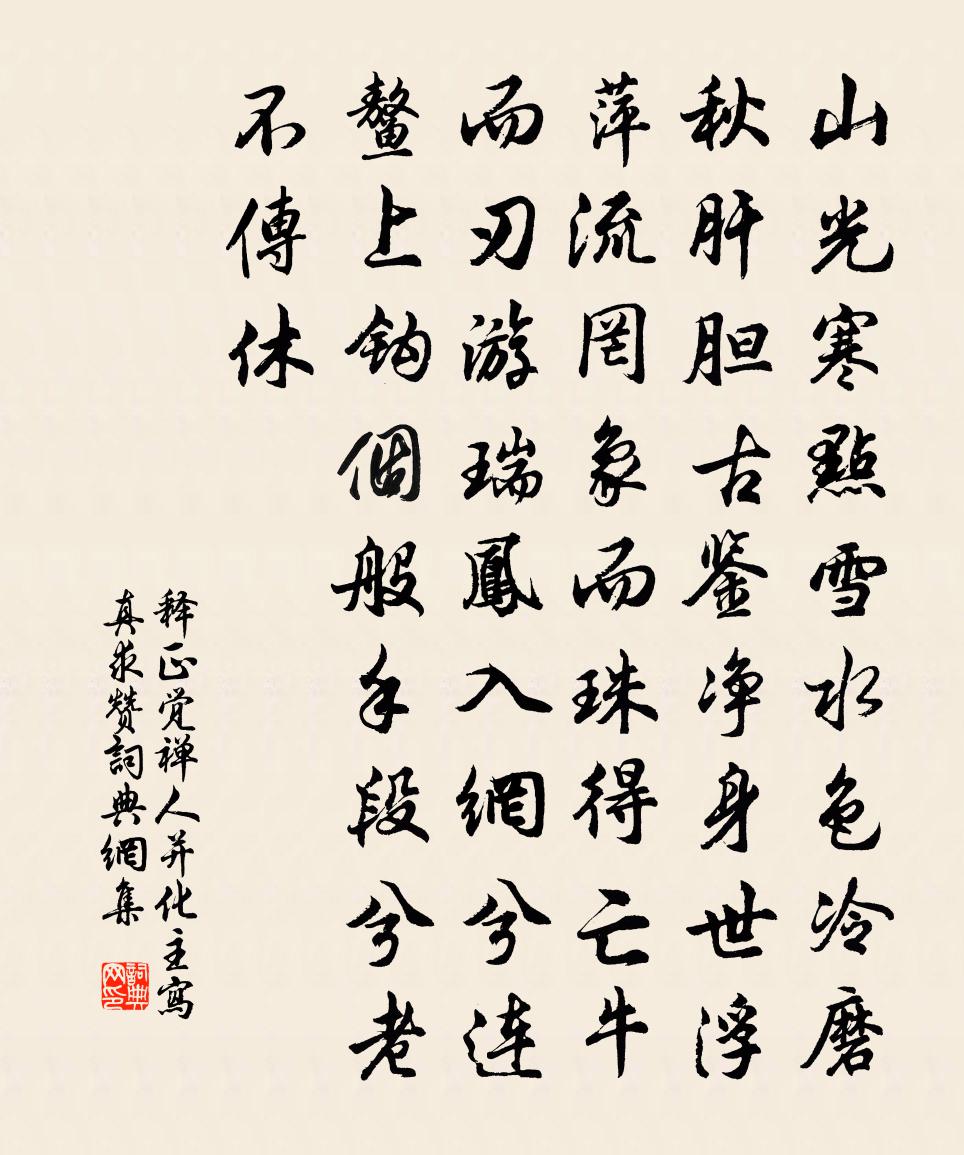 山光寒點雪水色冷磨
秋肝胆古鉴净身世浮
萍流罔象而珠得亡牛
而刃游瑞鳳入網兮連
鰲上鈎個般手段兮老
不傳休
释正觉禅人并化主寫
真求赞詞典網集
詞典
网印